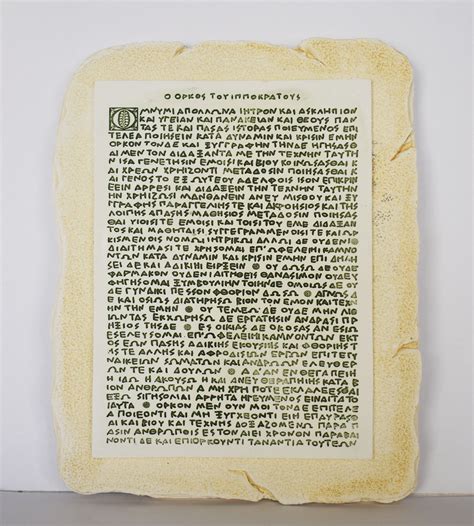 Ο ΟΡΚΟΣ ΤΟΥ ΙΠΠΟΚΡΑΤΟΥΣ
ΟΜΝΥΜΙ ΑΠΟΛΛΩΝΑ ΙΗΤΡΟΝ ΚΑΙ ΑΣΚΛΗΠΙΟΝ
ΚΑΙ ΥΓΕΙΑΝ ΚΑΙ ΠΑΝΑΚΕΙΑΝ ΚΑΙ ΘΕΟΥΣ ΠΑΝ
ΤΑΣ ΤΕ ΚΑΙ ΠΑΣΑΣ ΙΣΤΟΡΑΣ ΠΟΙΕΥΜΕΝΟΣ ΕΠΙ
ΤΕΛΕΑ ΠΟΙΗΣΕΙΝ ΚΑΤΑ ΔΥΝΑΜΙΝ ΚΑΙ ΚΡΙΣΙΝ ΕΜΗΝ
ΟΡΚΟΝ ΤΟΝΔΕ ΚΑΙ ΞΥΓΓΡΑΦΗΝ ΤΗΝΔΕ ΗΓΗΣΑΣΘ
ΑΙ ΜΕΝ ΤΟΝ ΔΙΔΑΞΑΝΤΑ ΜΕ ΤΗΝ ΤΕΧΝΗΝ ΤΑΥΤΗ
Ν ΙΣΑ ΓΕΝΕΤΗΣΙΝ ΕΜΟΙΣΙ ΚΑΙ ΒΙΟΥ ΚΟΙΝΩΣΑΣΘΑΙ Κ
ΑΙ ΧΡΕΩΝ ΧΡΗΙΖΟΝΤΙ ΜΕΤΑΔΟΣΙΝ ΠΟΙΗΣΑΣΘΑΙ Κ
ΑΙ ΓΕΝΟΣ ΤΟ ΕΞ ΩΥΤΕΟΥ ΑΔΕΛΦΟΙΣ ΙΣΟΝ ΕΠΙΚΡΙΝ
ΕΕΙΝ ΑΡΡΕΣΙ ΚΑΙ ΔΙΔΑΞΕΙΝ ΤΗΝ ΤΕΧΝΗΝ ΤΑΥΤΗΝ
ΗΝ ΧΡΗΙΖΩΣΙ ΜΑΝΘΑΝΕΙΝ ΑΝΕΥ ΜΙΣΘΟΥ ΚΑΙ ΞΥ
ΓΓΡΑΦΗΣ ΠΑΡΑΓΓΕΛΙΗΣ ΤΕ ΚΑΙ ΑΚΡΟΗΣΙΟΣ ΚΑΙ ΤΗΣ
ΛΟΙΠΗΣ ΑΠΑΣΗΣ ΜΑΘΗΣΙΟΣ ΜΕΤΑΔΟΣΙΝ ΠΟΙΗΣΑΣ
ΘΑΙ ΥΙΟΙΣΙ ΤΕ ΕΜΟΙΣΙ ΚΑΙ ΤΟΙΣΙ ΤΟΥ ΕΜΕ ΔΙΔΑΞΑΝ
ΤΟΣ ΚΑΙ ΜΑΘΗΤΑΙΣΙ ΣΥΓΓΕΓΡΑΜΜΕΝΟΙΣ ΤΕ ΚΑΙ ΩΡ
ΚΙΣΜΕΝΟΙΣ ΝΟΜΩ ΙΗΤΡΙΚΩ ΑΛΛΩ ΔΕ ΟΥΔΕΝΙ
ΔΙΑΙΤΗΜΑΣΙ ΤΕ ΧΡΗΣΟΜΑΙ ΕΠ ΩΦΕΛΕΙΗ ΚΑΜΝΟ
ΝΤΩΝ ΚΑΤΑ ΔΥΝΑΜΙΝ ΚΑΙ ΚΡΙΣΙΝ ΕΜΗΝ ΕΠΙ ΔΗΛΗ
ΣΕΙ ΔΕ ΚΑΙ ΑΔΙΚΙΗ ΕΙΡΞΕΙΝ ΟΥ ΔΩΣΩ ΔΕ ΟΥΔΕ
ΦΑΡΜΑΚΟΝ ΟΥΔΕΝΙ ΑΙΤΗΘΕΙΣ ΘΑΝΑΣΙΜΟΝ ΟΥΔΕ ΥΦ
ΗΓΗΣΟΜΑΙ ΞΥΜΒΟΥΛΙΗΝ ΤΟΙΗΝΔΕ ΟΜΟΙΩΣ ΔΕ ΟΥ
ΔΕ ΓΥΝΑΙΚΙ ΠΕΣΣΟΝ ΦΘΟΡΙΟΝ ΔΩΣΩ ΑΓΝΩΣ
ΔΕ ΚΑΙ ΟΣΙΩΣ ΔΙΑΤΗΡΗΣΩ ΒΙΟΝ ΤΟΝ ΕΜΟΝ ΚΑΙ ΤΕΧΝ
ΗΝ ΤΗΝ ΕΜΗΝ ΟΥ ΤΕΜΩ ΔΕ ΟΥΔΕ ΜΗΝ ΛΙΘΙΩ
ΝΤΑΣ ΕΚΧΩΡΗΣΩ ΔΕ ΕΡΓΑΤΗΣΙΝ ΑΝΔΡΑΣΙ ΠΡ
ΗΞΙΟΣ ΤΗΣΔΕ ΕΣ ΟΙΚΙΑΣ ΔΕ ΟΚΟΣΑΣ ΑΝ ΕΣΙΩ
ΕΣΕΛΕΥΣΟΜΑΙ ΕΠ ΩΦΕΛΕΙΗ ΚΑΜΝΟΝΤΩΝ ΕΚΤ
ΟΣ ΕΩΝ ΠΑΣΗΣ ΑΔΙΚΙΗΣ ΕΚΟΥΣΙΗΣ ΚΑΙ ΦΘΟΡΙΗΣ Τ
ΗΣ ΤΕ ΑΛΛΗΣ ΚΑΙ ΑΦΡΟΔΙΣΙΩΝ ΕΡΓΩΝ ΕΠΙ ΤΕ ΓΥ
ΝΑΙΚΕΙΩΝ ΣΩΜΑΤΩΝ ΚΑΙ ΑΝΔΡΩΩΝ ΕΛΕΥΘΕΡ
ΩΝ ΤΕ ΚΑΙ ΔΟΥΛΩΝ Α Δ ΑΝ ΕΝ ΘΕΡΑΠΕΙΗ
Η ΙΔΩ Η ΑΚΟΥΣΩ Η ΚΑΙ ΑΝΕΥ ΘΕΡΑΠΗΙΗΣ ΚΑΤΑ Β
ΙΟΝ ΑΝΘΡΩΠΩΝ Α ΜΗ ΧΡΗ ΠΟΤΕ ΕΚΛΑΛΕΕΣΘΑΙ
ΕΞΩ ΣΙΓΗΣΟΜΑΙ ΑΡΡΗΤΑ ΗΓΕΥΜΕΝΟΣ ΕΙΝΑΙ ΤΑ ΤΟ
ΙΑΥΤΑ ΟΡΚΟΝ ΜΕΝ ΟΥΝ ΜΟΙ ΤΟΝΔΕ ΕΠΙΤΕΛΕ
Α ΠΟΙΕΟΝΤΙ ΚΑΙ ΜΗ ΞΥΓΧΕΟΝΤΙ ΕΙΗ ΕΠΑΥΡΑΣΘ
ΑΙ ΚΑΙ ΒΙΟΥ ΚΑΙ ΤΕΧΝΗΣ ΔΟΞΑΖΟΜΕΝΩ ΠΑΡΑ Π
ΑΣΙΝ ΑΝΘΡΩΠΟΙΣ ΕΣ ΤΟΝ ΑΙΕΙ ΧΡΟΝΟΝ ΠΑΡΑΒΑΙ
ΝΟΝΤΙ ΔΕ ΚΑΙ ΕΠΙΟΡΚΟΥΝΤΙ ΤΑΝΑΝΤΙΑ ΤΟΥΤΕΩΝ